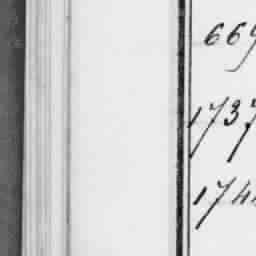 669
1737
174